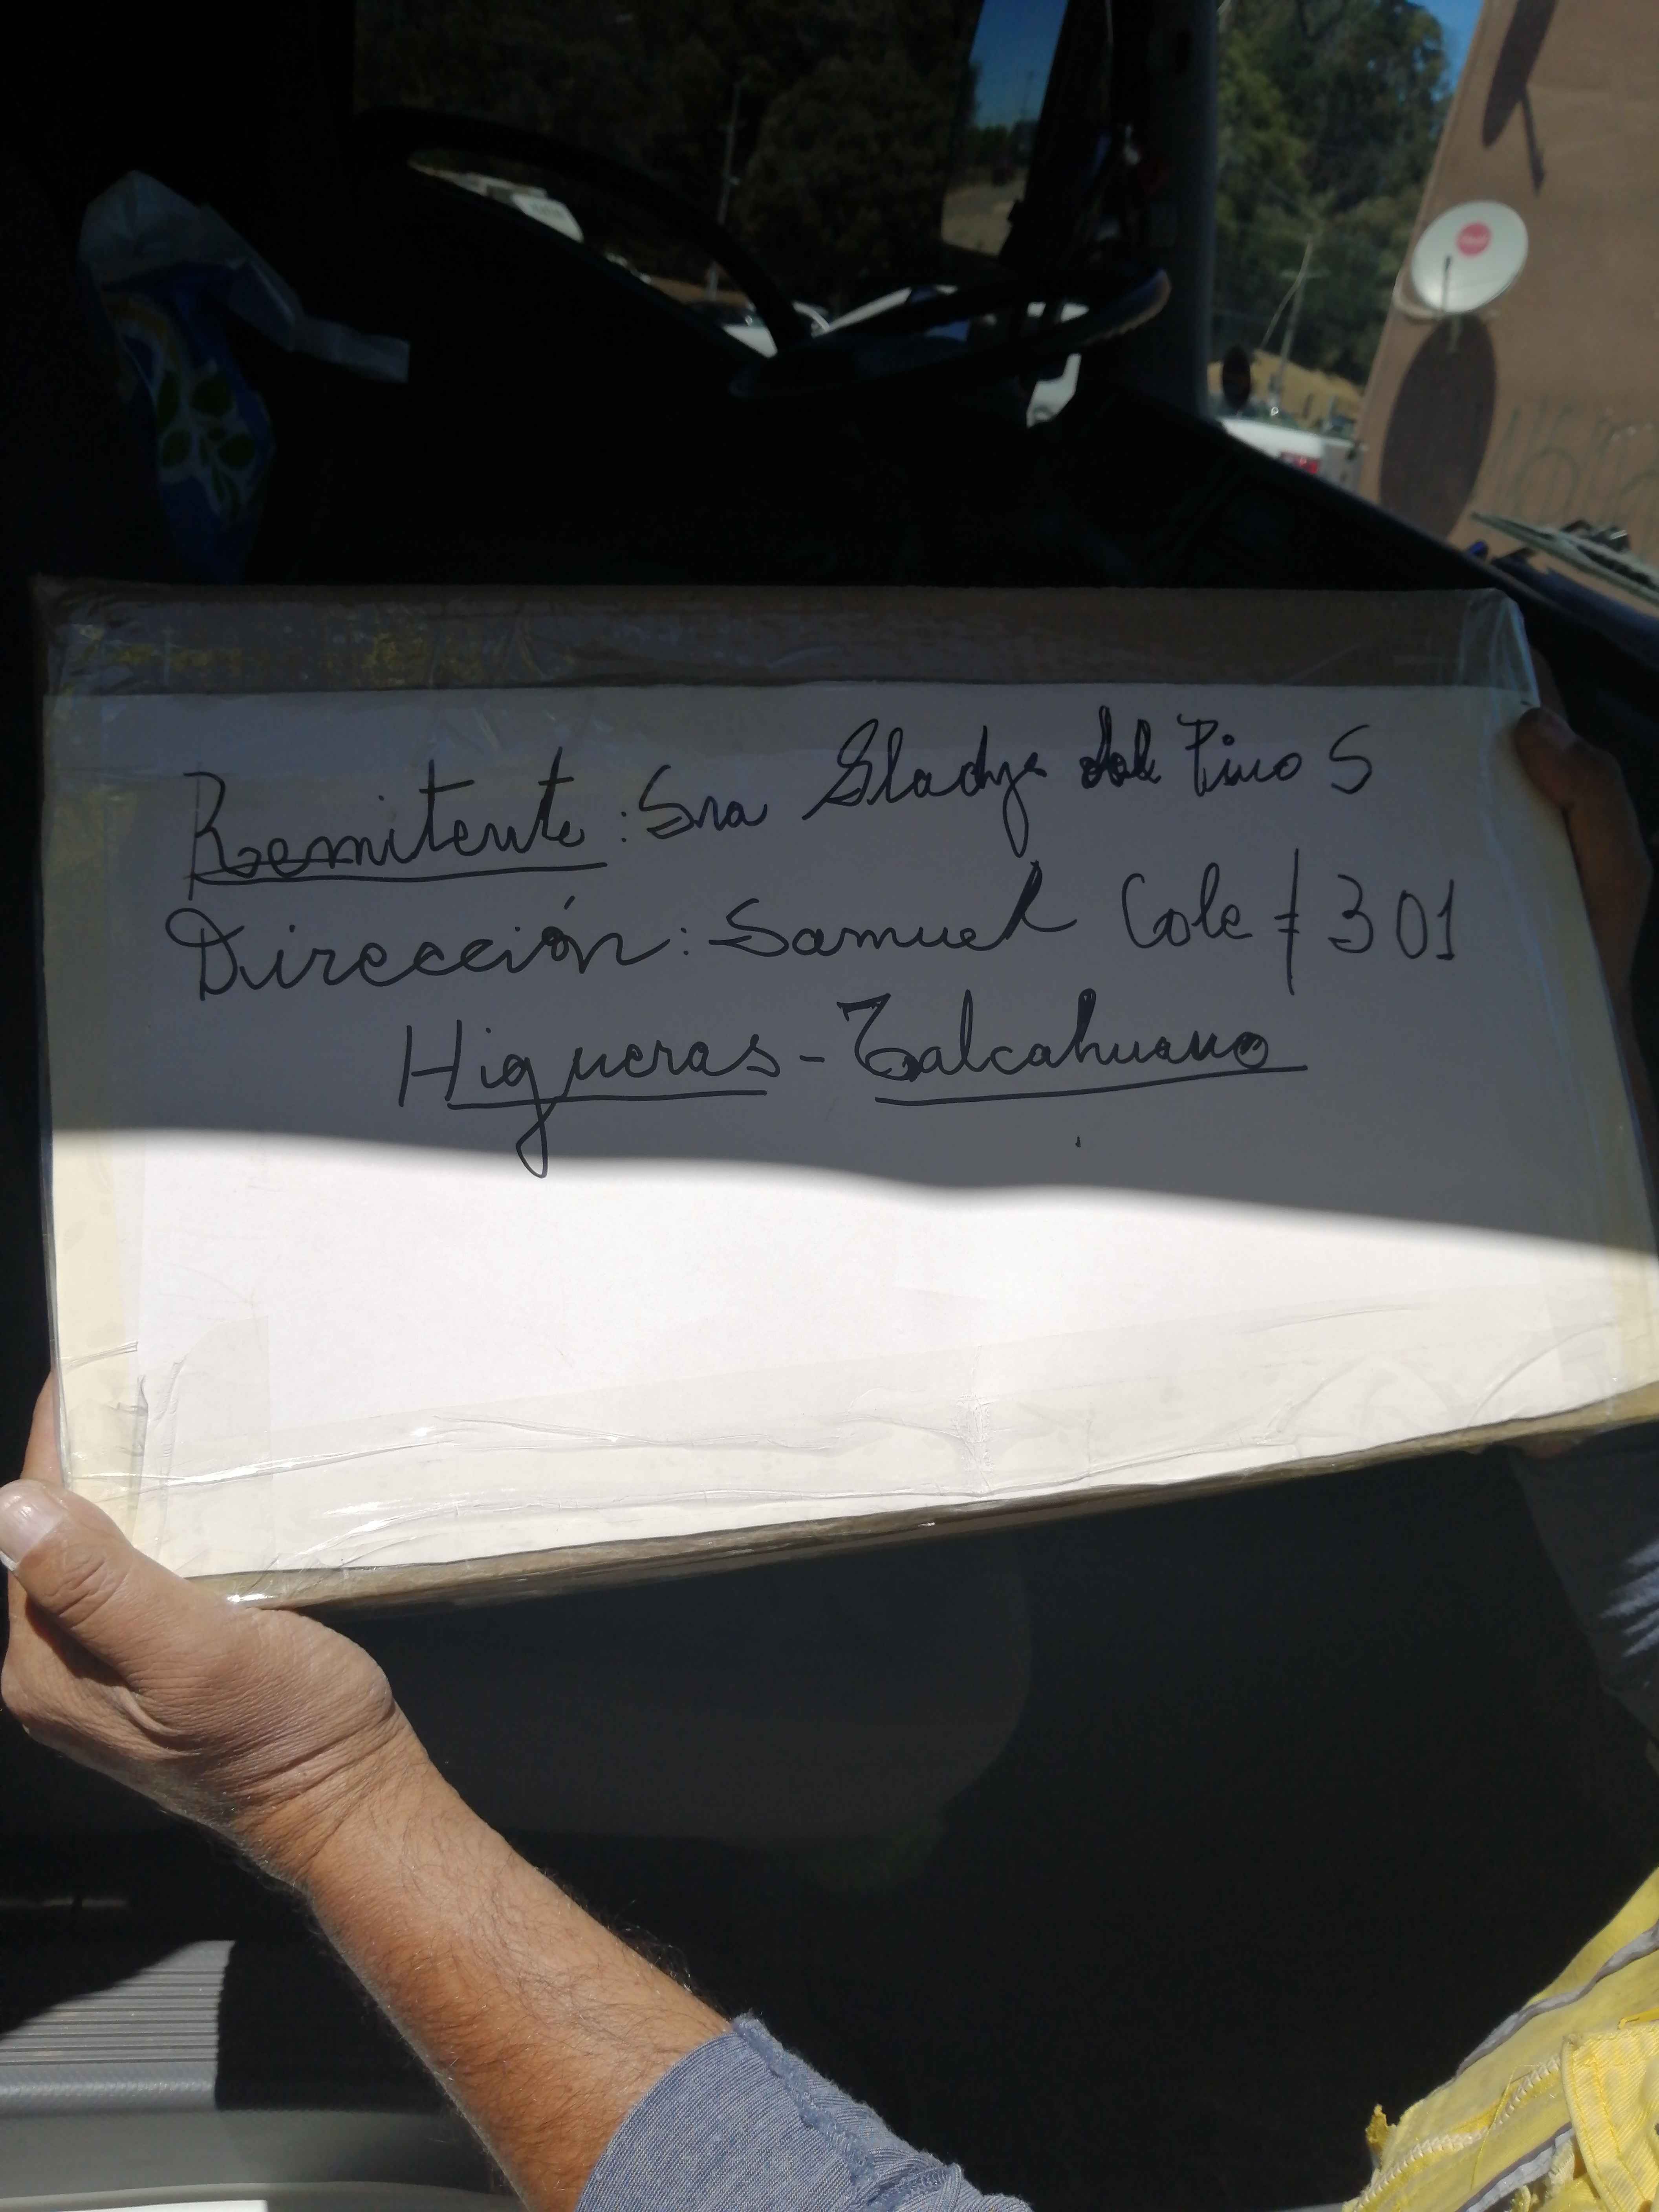 Remitente : Sra Gladys del Pino S
Dirección : Samuel Cole # 301
Higueras - Talcahuano